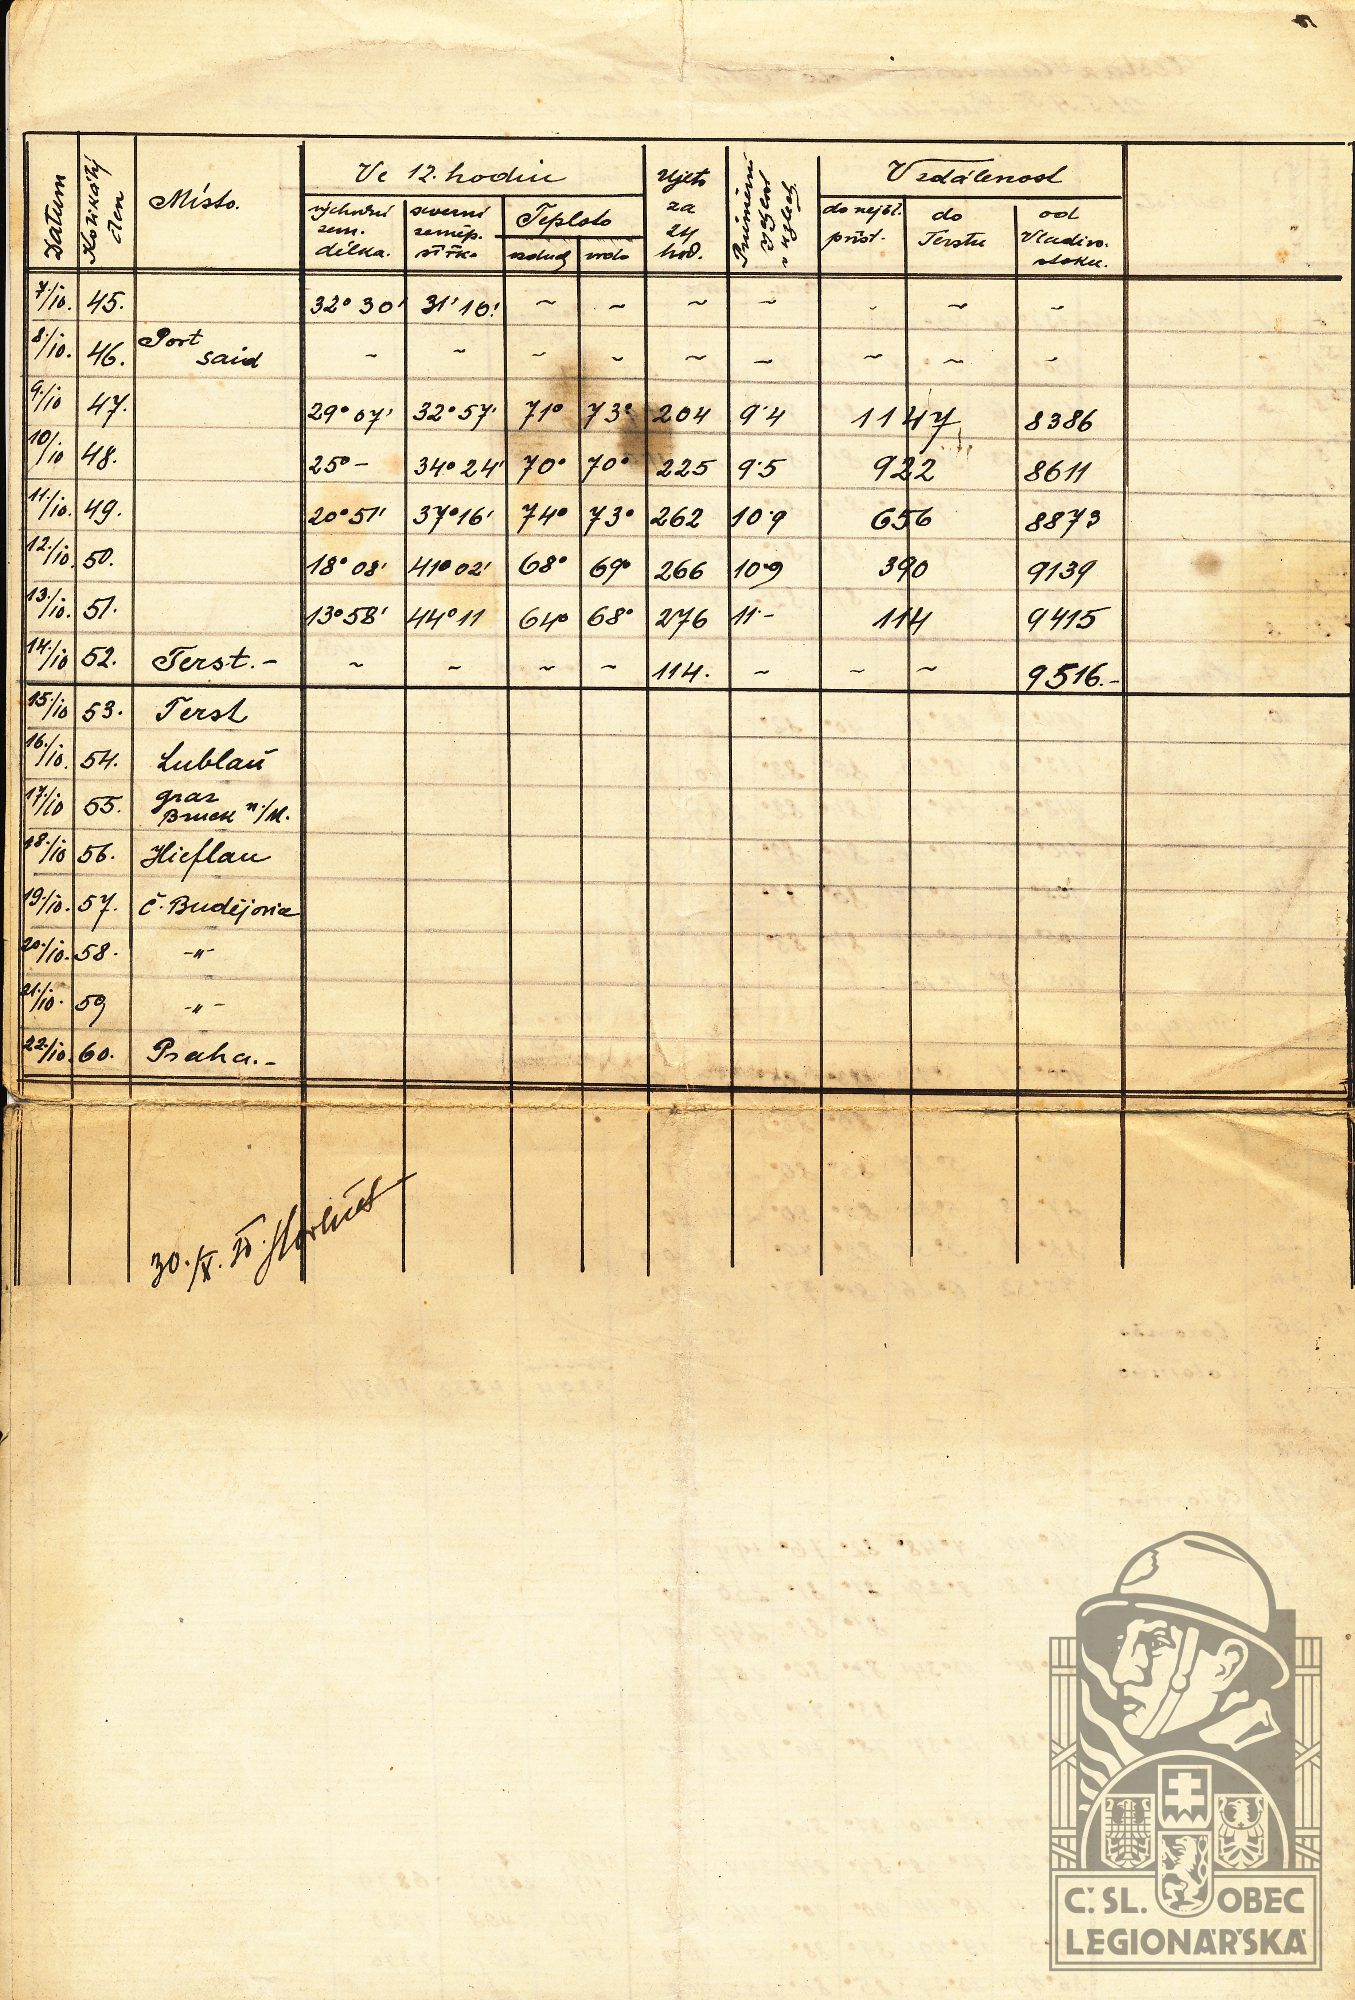 Datum Kolikátý den Místo. Ve 12. hodin Ujeto za 24 hod. Průměrní v uzlech. Vzdálenost
východní zem. délka. severní zeměp. šířka Teplota do nejbl. příst. do Terstu od Vladivostoku.
vzduch voda
7./10. 45. 32° 30' 31' 10! ~ ~ ~ ~ - ~ ~
8./10. 46. Port Said ~ ~ ~ ~ ~ ~ ~ ~ ~
9./10 47. 29° 07' 32° 57' 71° 73° 204 9·4 1147 8386
10./10 48. 25° - 34° 24' 70° 70° 225 9·5 922 8611
11./10. 49. 20° 51' 37° 16' 74° 73° 262 10·9 656 8873
12./10. 50. 18° 08' 41° 02' 68° 69° 266 10·9 390 9139
13./10. 51. 13° 58' 44° 11 64° 68° 276 11·- 114 9415
14./10 52. Terst.- ~ ~ ~ ~ 114. ~ ~ ~ 9516.-
15./10 53. Terst
16./10. 54. Lublaň
17./10 55. Graz Bruck n./M.
18./10 56. Hieflau
19./10. 57. Č. Budějovice
20./10. 58. -"-
21./10. 59 -"-
22./10. 60. Praha.-
30./X.
C.SL. OBEC
LEGIONÁŘSKÁ